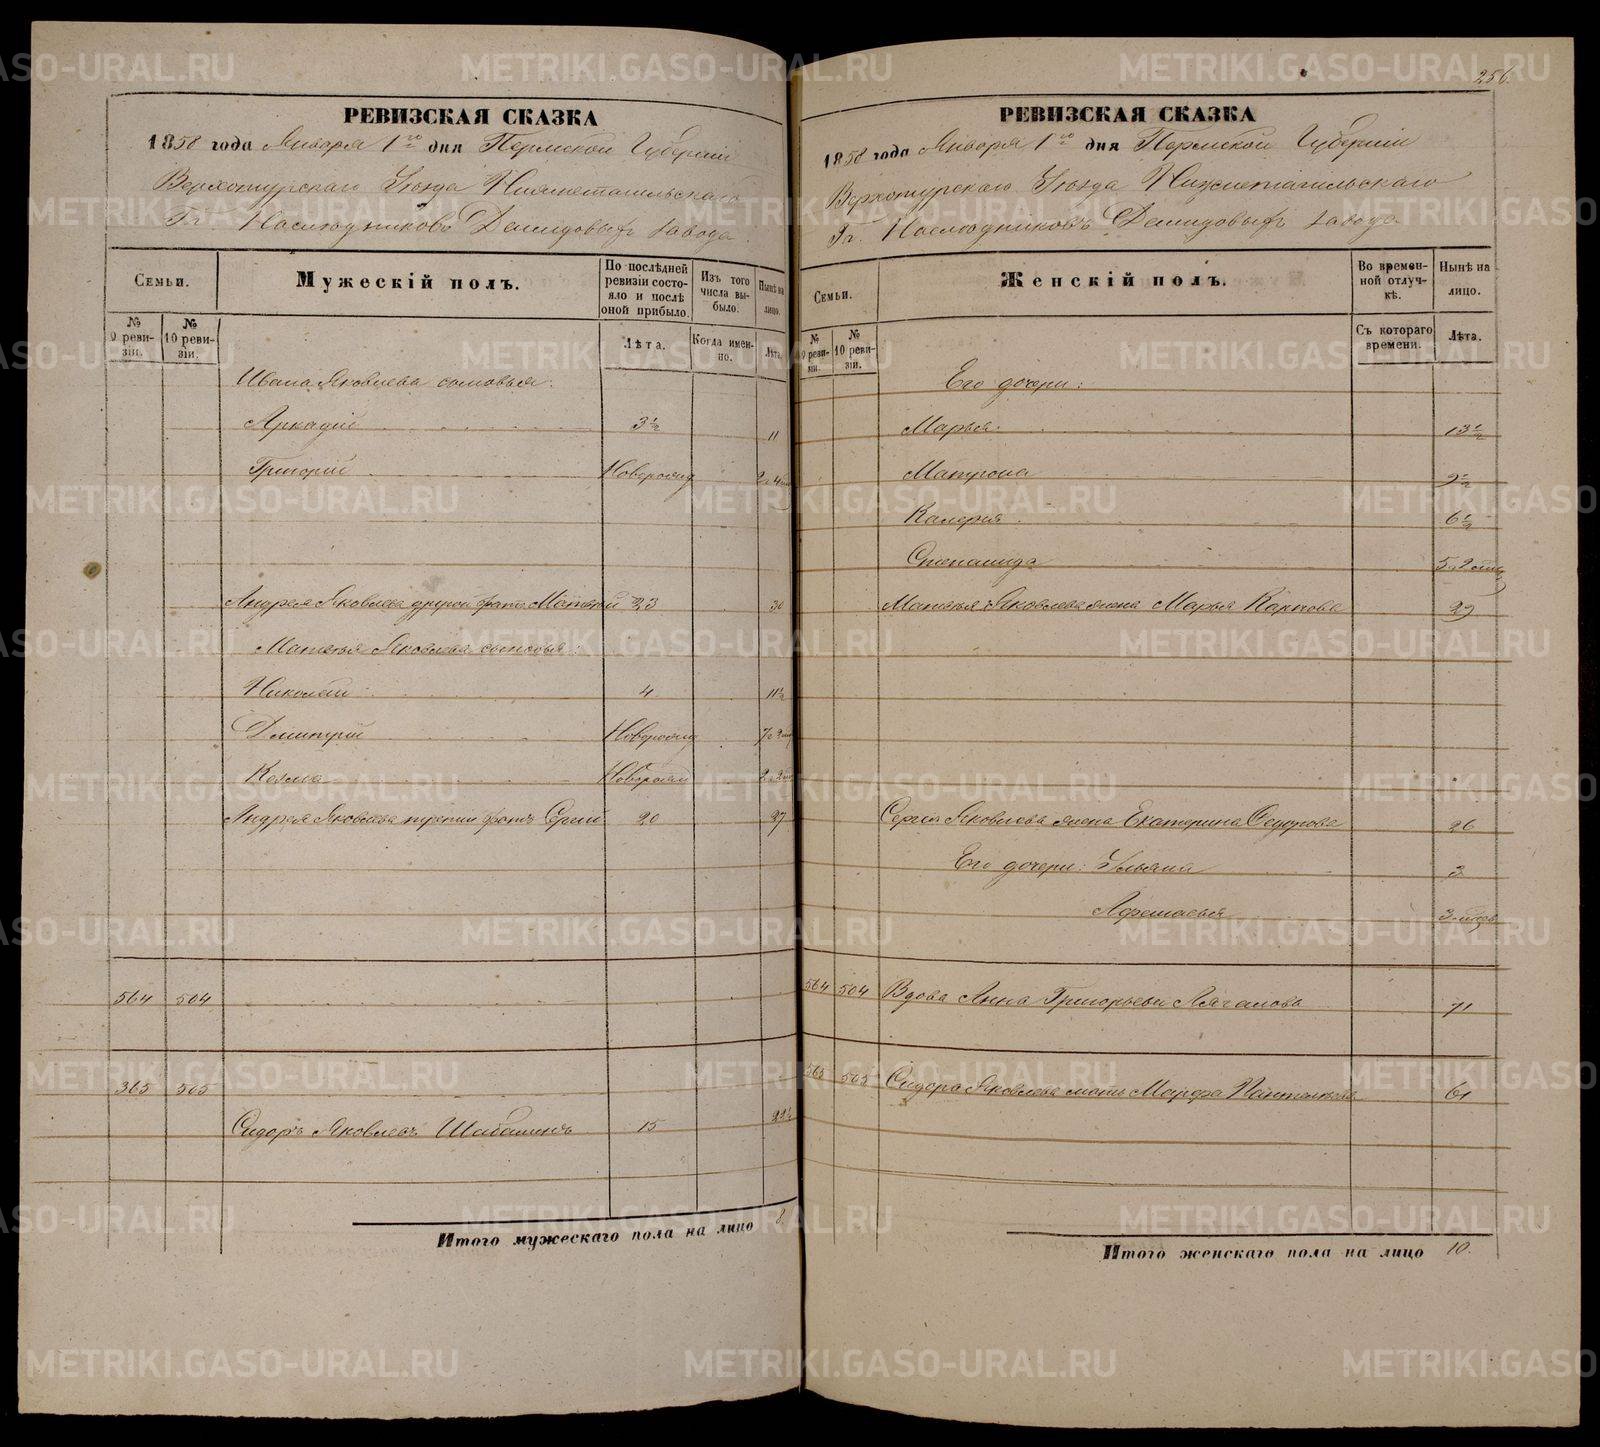 РЕВИЗСКАЯ СКАЗКА
1858 года Января 1го дня Пермской Губерніи
Верхотурскаго Уѣзда Нижнетагильскаго
Гг. Наслѣдниковъ Демидовыхъ завода
Семьи.
Мужескій полъ.
По послѣдней ревизіи состояло и послѣ оной прибыло.
Изъ того числа выбыло.
Нынѣ на лицо.
№ 9 ревизіи.
№ 10 ревизіи.
Лѣта.
Когда именно.
Лѣта.
Ивана Яковлева сыновья:
Аркадій 3½ 11
Григорій Новорожд
Андрея Яковлева другой братъ Матвѣй 23 30
Матвѣя Яковлева сыновья:
Николай 4 11½
Дмитрій Новорожд
Козма Новорожд
Андрея Яковлева третій братъ Сергій 20 27
564 504
365 505
Сидоръ Яковлевъ Шабалинъ 15 22½
Итого мужескаго пола на лицо 8.
256.
РЕВИЗСКАЯ СКАЗКА
1858 года Января 1го дня Пермской Губерніи
Верхотурскаго Уѣзда Нижнетагильскаго
Гг. Наслѣдниковъ Демидовыхъ завода
Семьи.
Женскій полъ.
Во временной отлучкѣ.
Нынѣ на лицо.
№ 9 ревизіи.
№ 10 ревизіи.
Съ котораго времени.
Лѣта.
Его дочери:
Марья 13½
Матрона 9½
Калерія 6½
Степанида
Матвѣя Яковлева жена Марья Карпова 29
Сергія Яковлева жена Екатерина Ѳедорова 26
Его дочери: Ульяна 3
Афанасья
564 504 Вдова Анна Григорьева 71
565 505 Сидора Яковлева мать Марфа 61
Итого женскаго пола на лицо 10.
METRIKI.GASO-URAL.RU